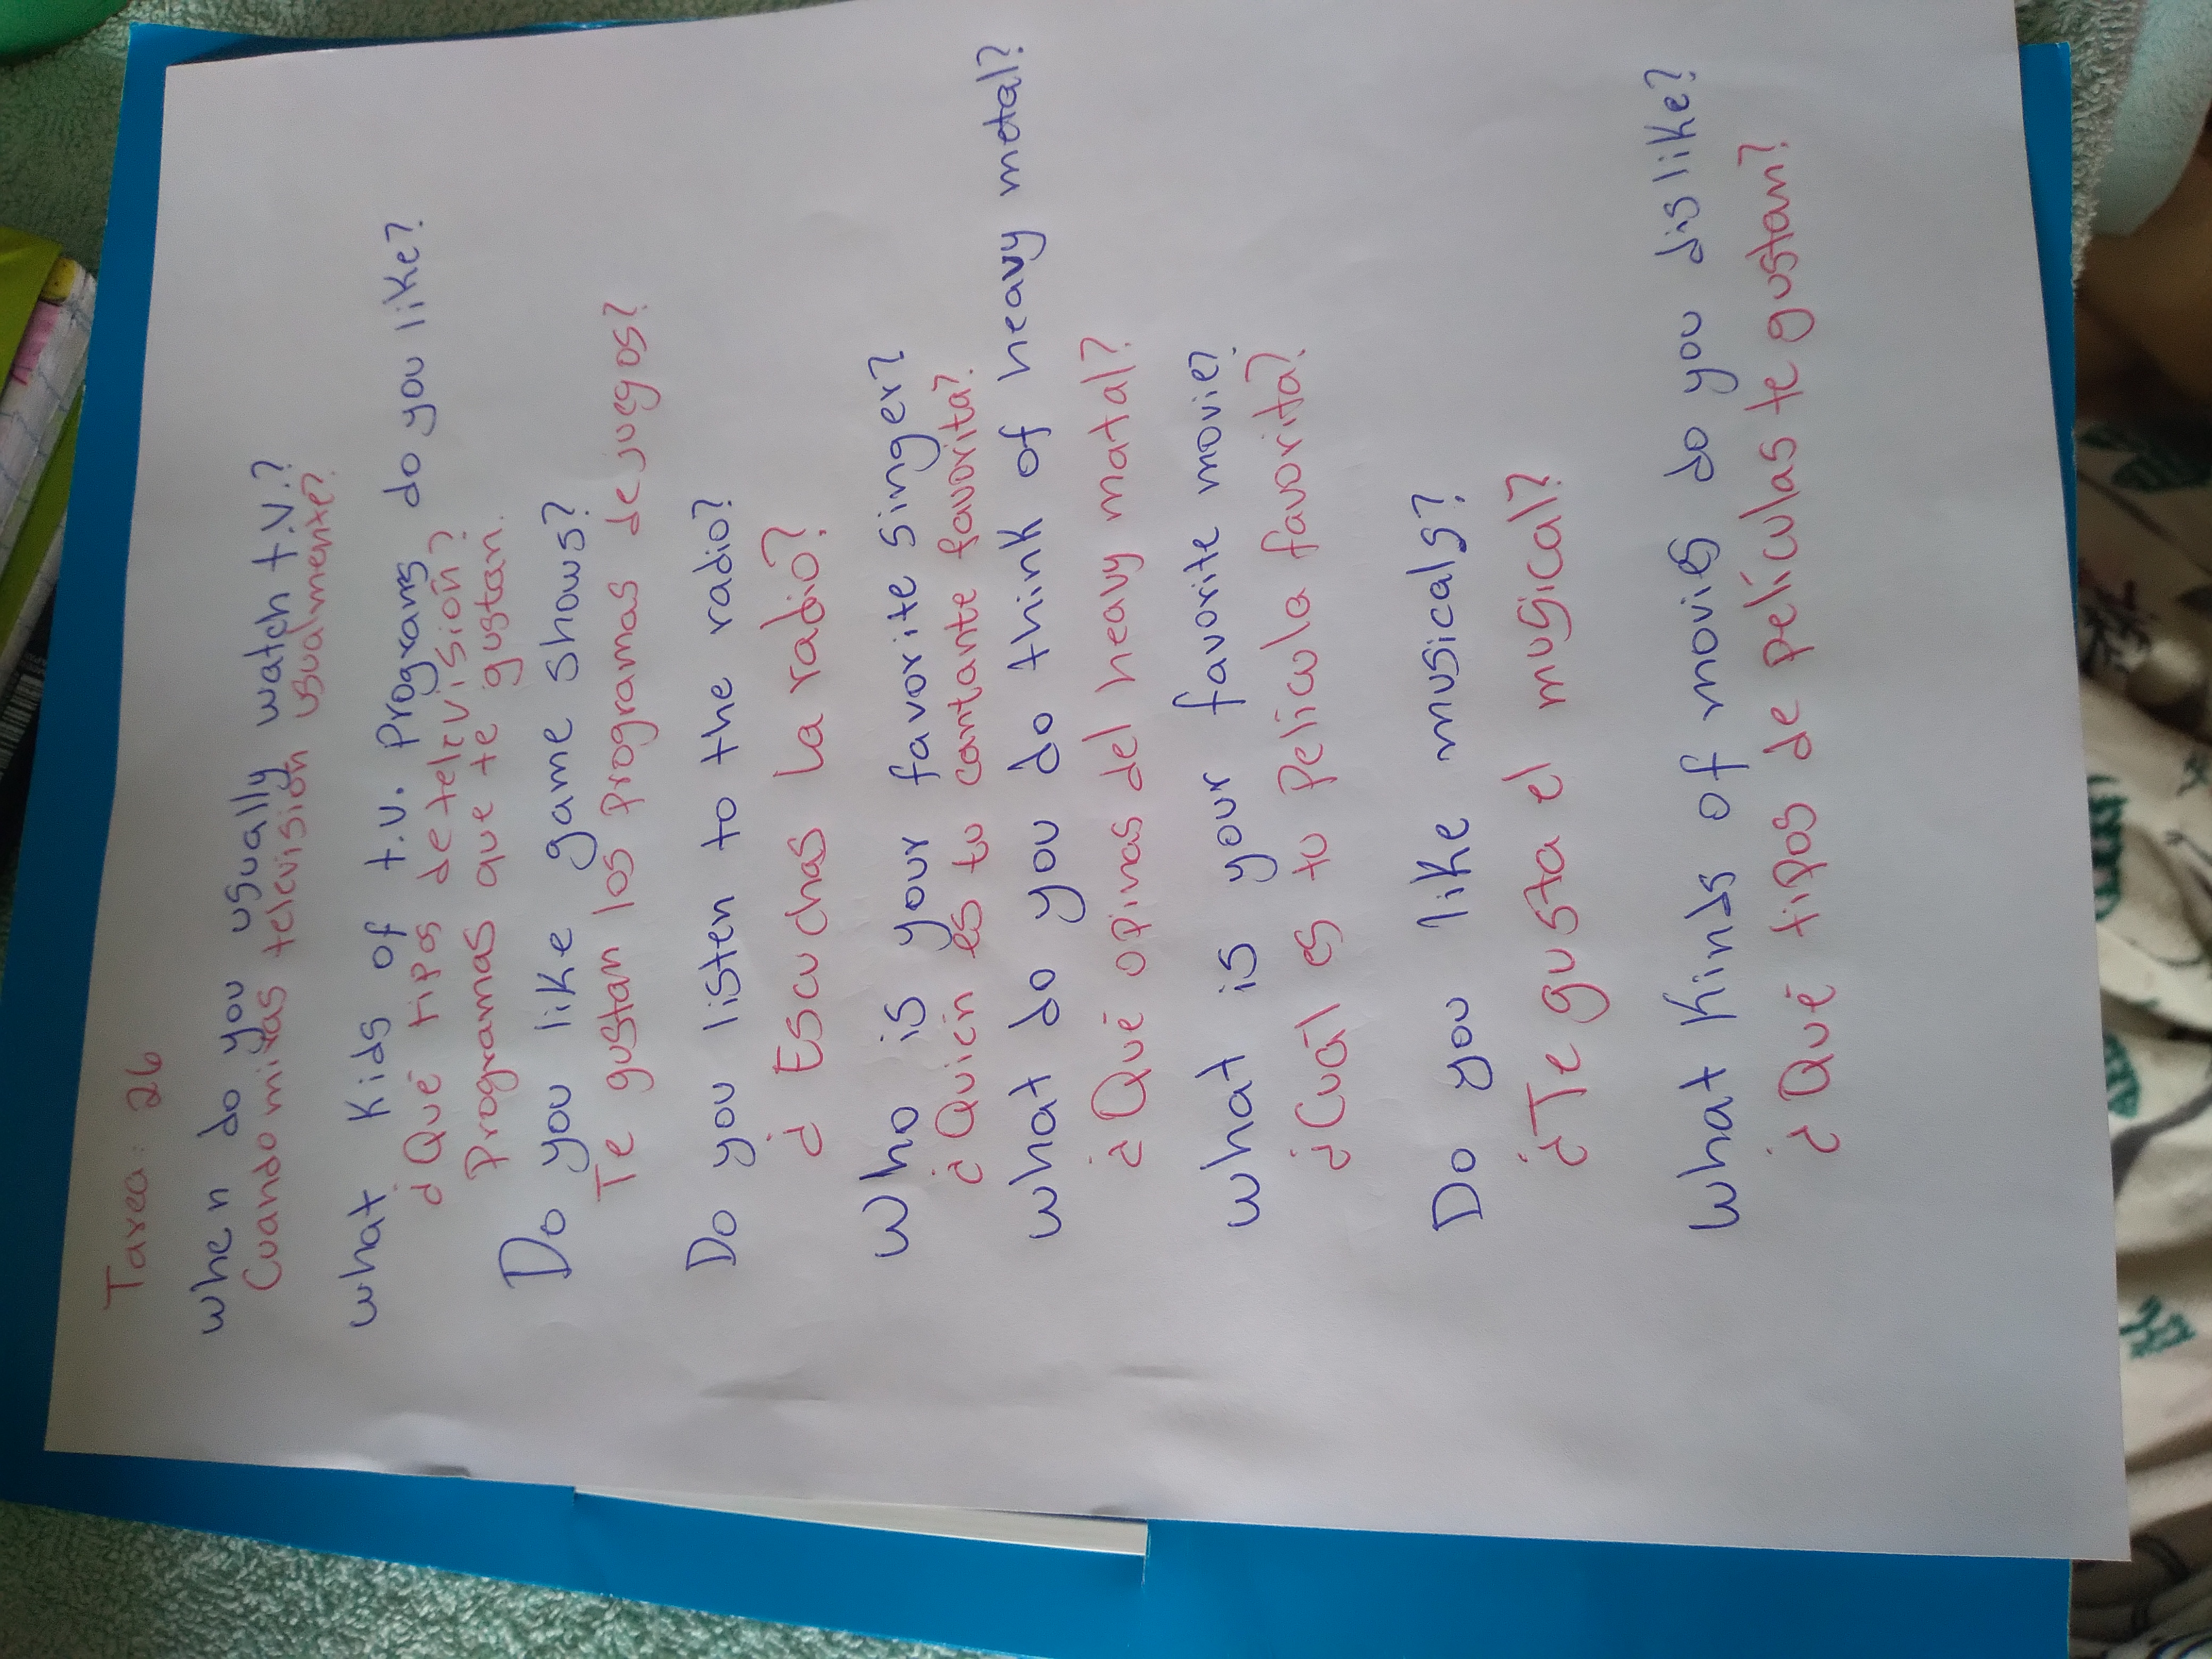 Tarea: 26
when do you usually watch t.v.?
Cuando miras televisión usualmente?
what Kids of t.v. Programs do you like?
¿Qué tipos de televisión?
Programas que te gustan.
Do you like game shows?
Te gustan los programas de juegos?
Do you listen to the radio?
¿Escuchas La radio?
Who is your favorite singer?
¿Quién es tu cantante favorita?
what do you do think of heavy metal?
¿Qué opinas del heavy matal?
what is your favorite movie?
¿Cuál es tu película favorita?
Do you like musicals?
¿Te gusta el musical?
what Kinds of movies do you dislike?
¿Qué tipos de películas te gustan?